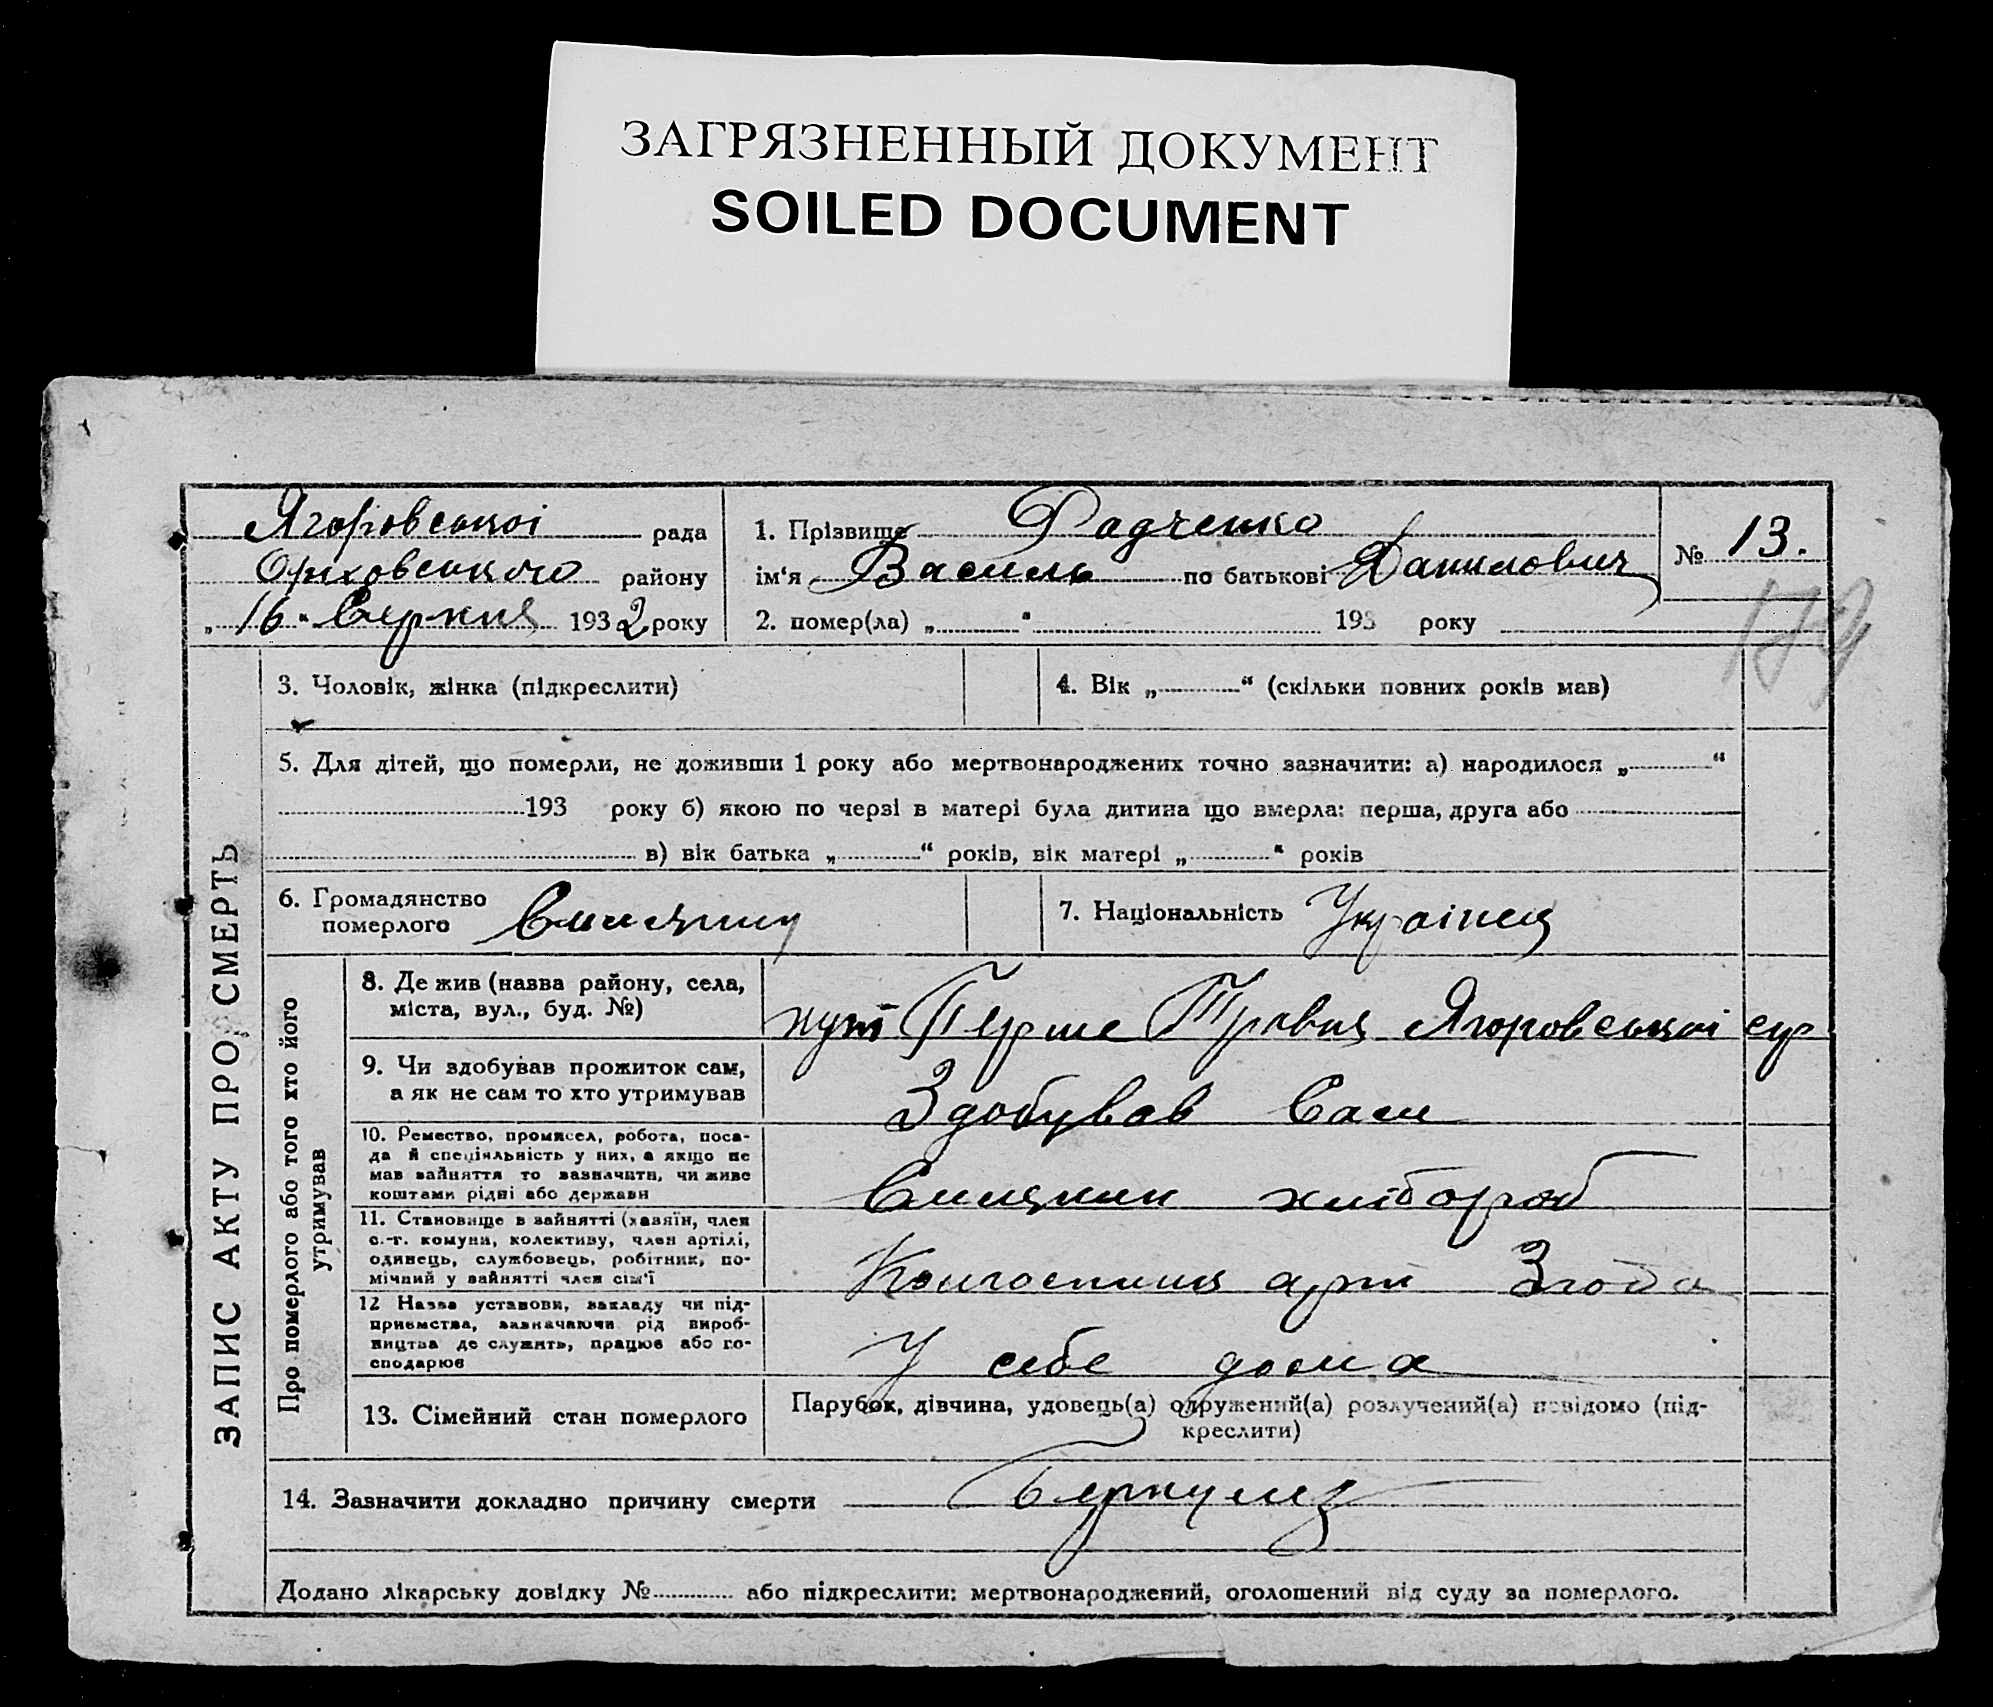 ЗАГРЯЗНЕННЫЙ ДОКУМЕНТ
SOILED DOCUMENT
Ягоровської рада
Оріховського району
„16“ Серпня 1932 року
1. Прізвище Радченко
ім‘я Василь по батькові Данилович
2. помер(ла) „ “ 193 року
№ 13.
3. Чоловік, жінка (підкреслити)
4. Вік „ “ (скільки повних років мав)
5. Для дітей, що померли, не доживши 1 року або мертвонароджених точно зазначити: а) народилося „ “
193 року б) якою по черзі в матері була дитина що вмерла: перша, друга або
в) вік батька „ “ років, вік матері „ “ років
6. Громадянство
померлого
7. Національність Українец
ЗАПИС АКТУ ПРО СМЕРТЬ
Про померлого або того хто його
утримував
8. Де жив (назва району, села,
міста, вул., буд. №)
Перше Травня Ягоровської ср
9. Чи здобував прожиток сам,
а як не сам то хто утримував
Здобував Сам
10. Ремество, промисел, робота, поса-
да й спеціяльність у них, а якщо не
мав зайняття то зазначити, чи живе
коштами рідні або держави
хлібороб
11. Становище в зайнятті (хазяїн, член
с.-г. комуни, колективу, член артілі,
одинець, службовець, робітник, по-
мічний у зайнятті член сім‘ї
арт Згода
12 Назва установи, закладу чи під-
приємства, зазначаючи рід вироб-
ництва де служить, працює або го-
сподарює
У себе дома
13. Сімейний стан померлого
Парубок, дівчина, удовець(а) одружений(а) розлучений(а) невідомо (під-
креслити)
14. Зазначити докладно причину смерти
Додано лікарську довідку № або підкреслити: мертвонароджений, оголошений від суду за померлого.